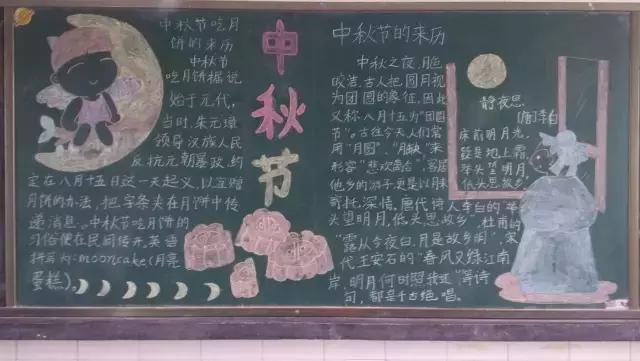 中秋节吃月
饼的来历
中秋节
吃月饼据说
始于元代，
当时，朱元璋
领导汉族人民
反抗元朝暴政，约
定在八月十五日这一天起义，以互赠
月饼的办法，把字条夹在月饼中传
递消息。中秋节吃月饼的
习俗便在民间传开，英语
拼写为：mooncake（月亮
蛋糕）。
中
秋
节
中秋节的来历
中秋之夜，月色
皎洁，古人把圆月视
为团圆的象征，因此
又称八月十五为“团圆
节”。古往今天人们常
用“月圆”、“月缺”来
形容“悲欢离合”，客居
他乡的游子更是以月来
寄托深情。唐代诗人李白的“举
头望明月，低头思故乡”，杜甫的
“露从今夜白，月是故乡明”，宋
代王安石的“春风又绿江南
岸，明月何时照我还”等诗
句，都是千古绝唱。
静夜思
[唐]李白
床前明月光，
疑是地上霜，
举头望明月，
低头思故乡。